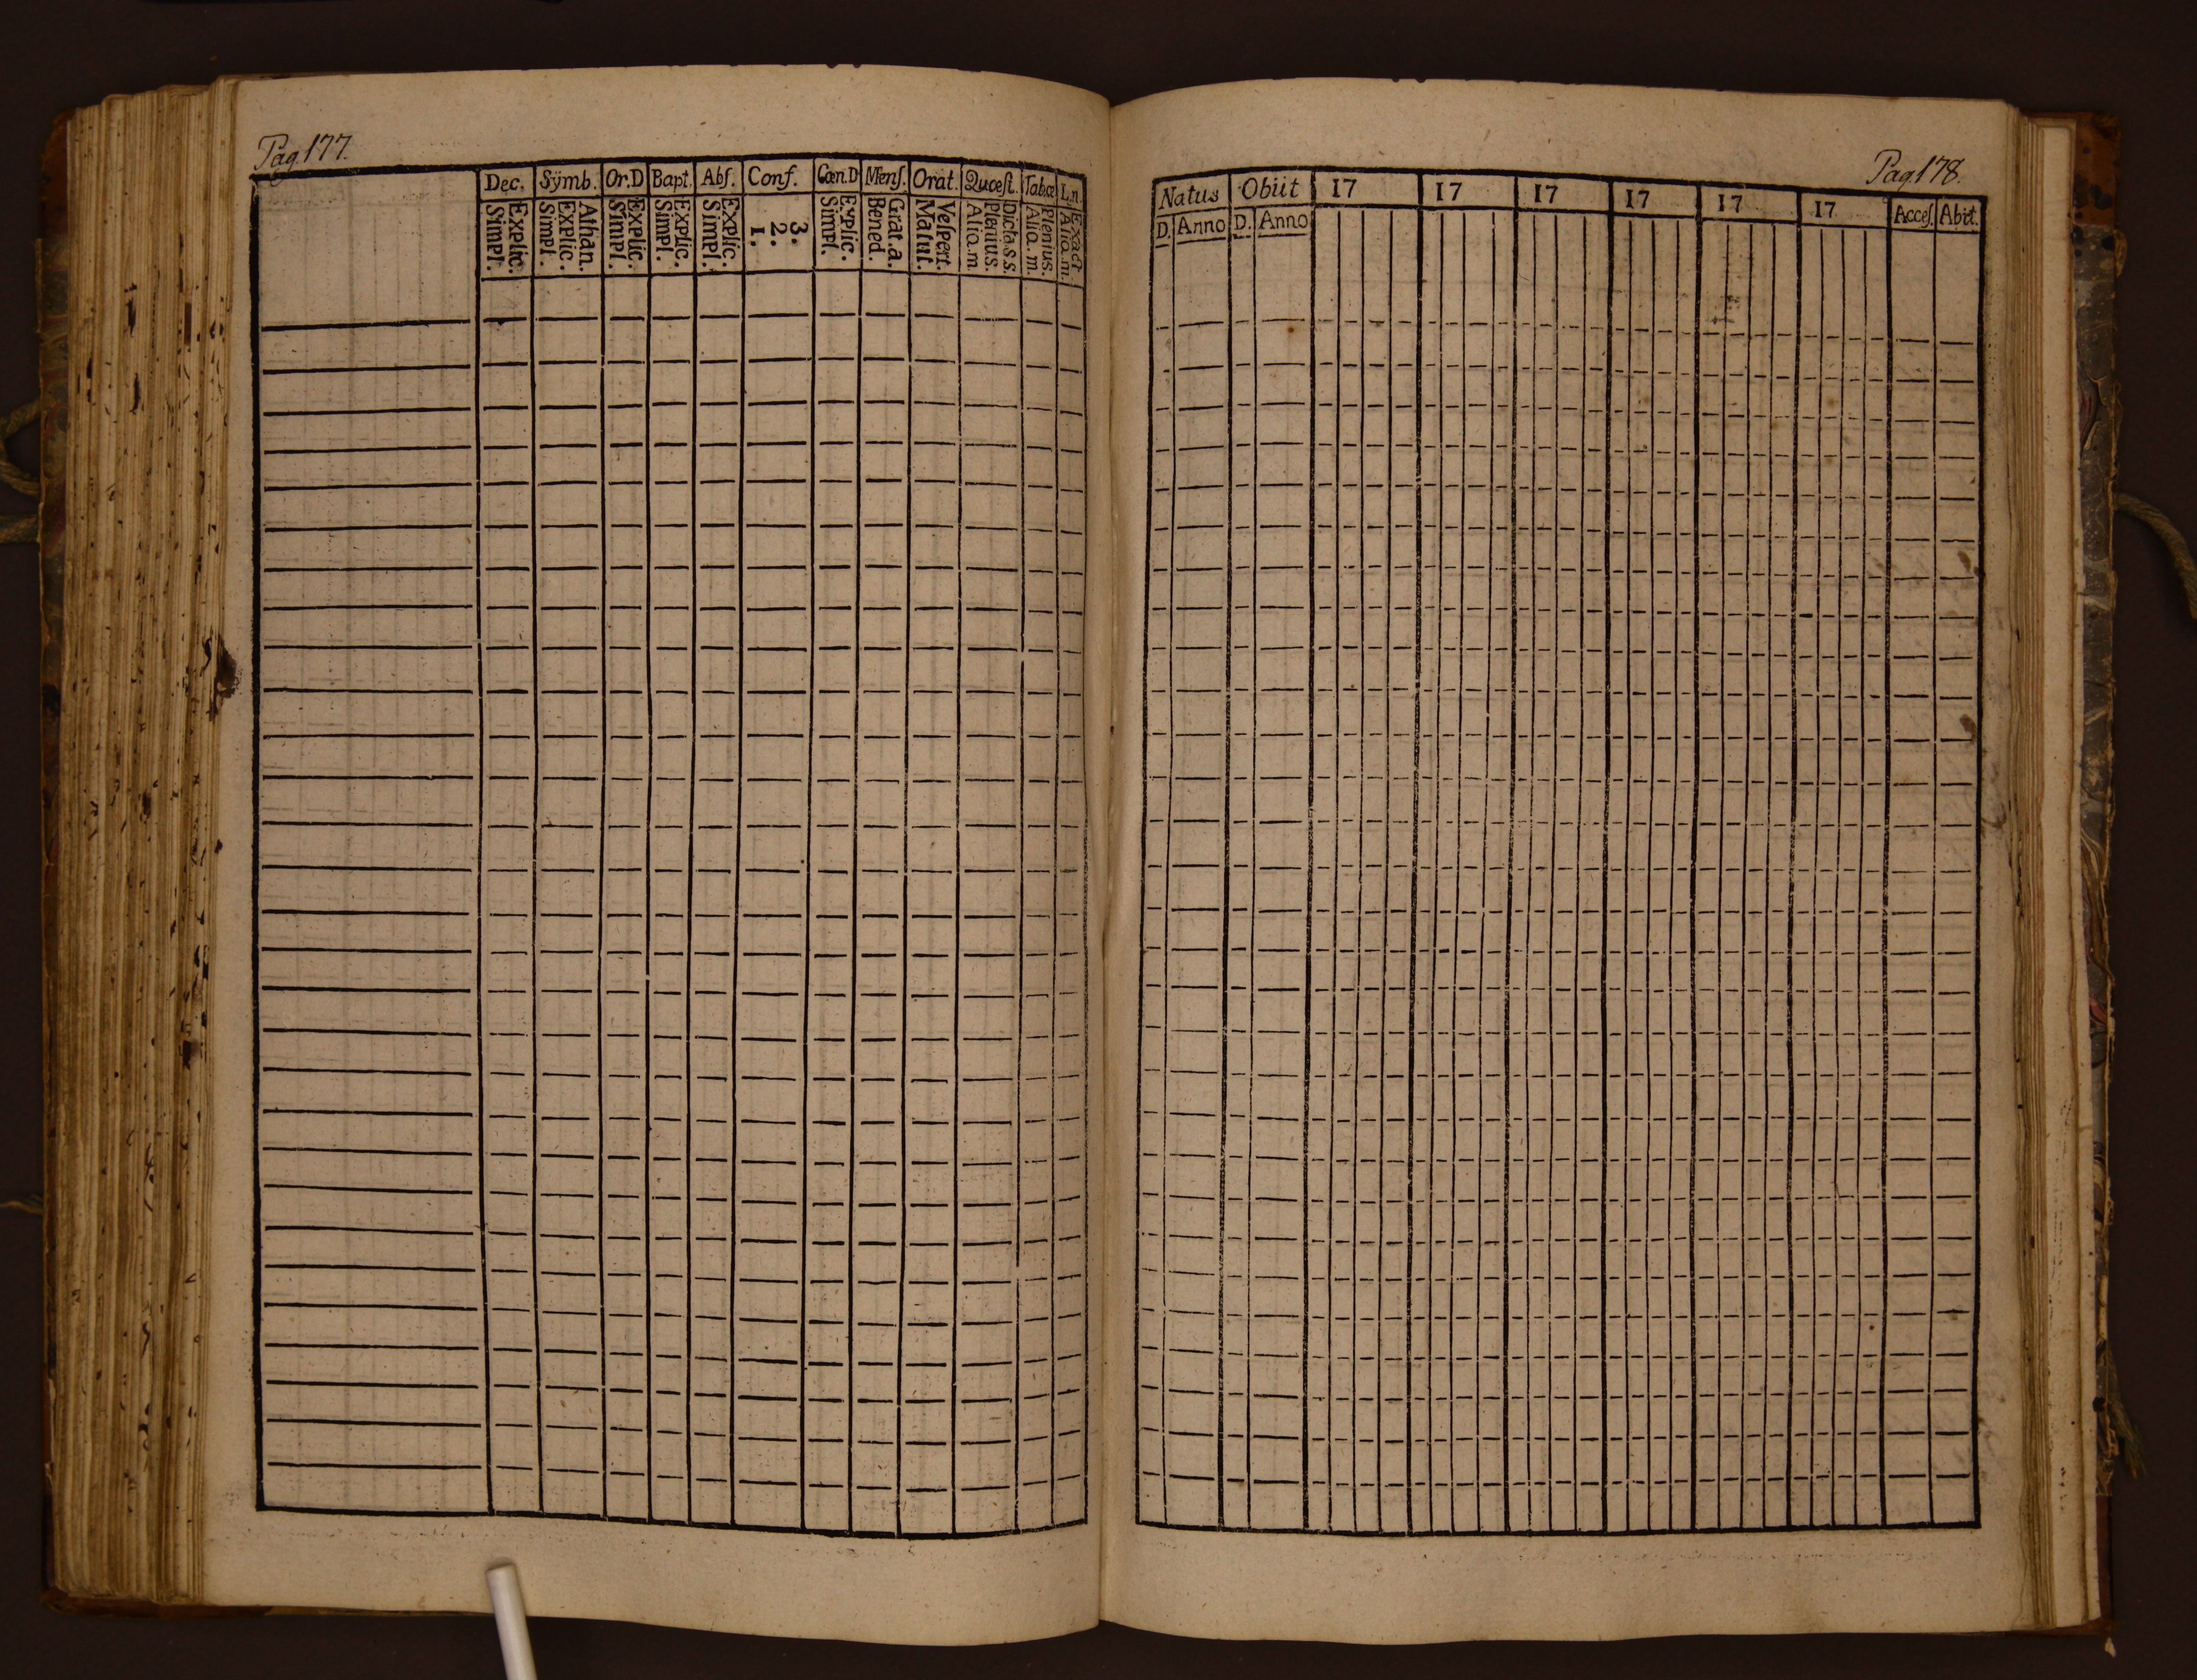 Pag. 177.
Dec. Sÿmb. Or.D Bapt. Abſ. Conf. Cœn.D Menſ. Orat. Quæſt. Tabœ L.n.
Explic. Simpl.
Athan. Explic. Simpl.
Explic. Simpl.
Explic. Simpl.
Explic. Simpl.
3. 2. 1.
Explic. Simpl.
Grat.a. Bened.
Veſpert. Matut.
Dicta s.s. Plenius. Alia.m.
Plenius. Alia.m.
Exact Alia.m.
Pag 178.
Natus Obiit 17 17 17 17 17 17 Acceſ. Abit.
D. Anno D. Anno